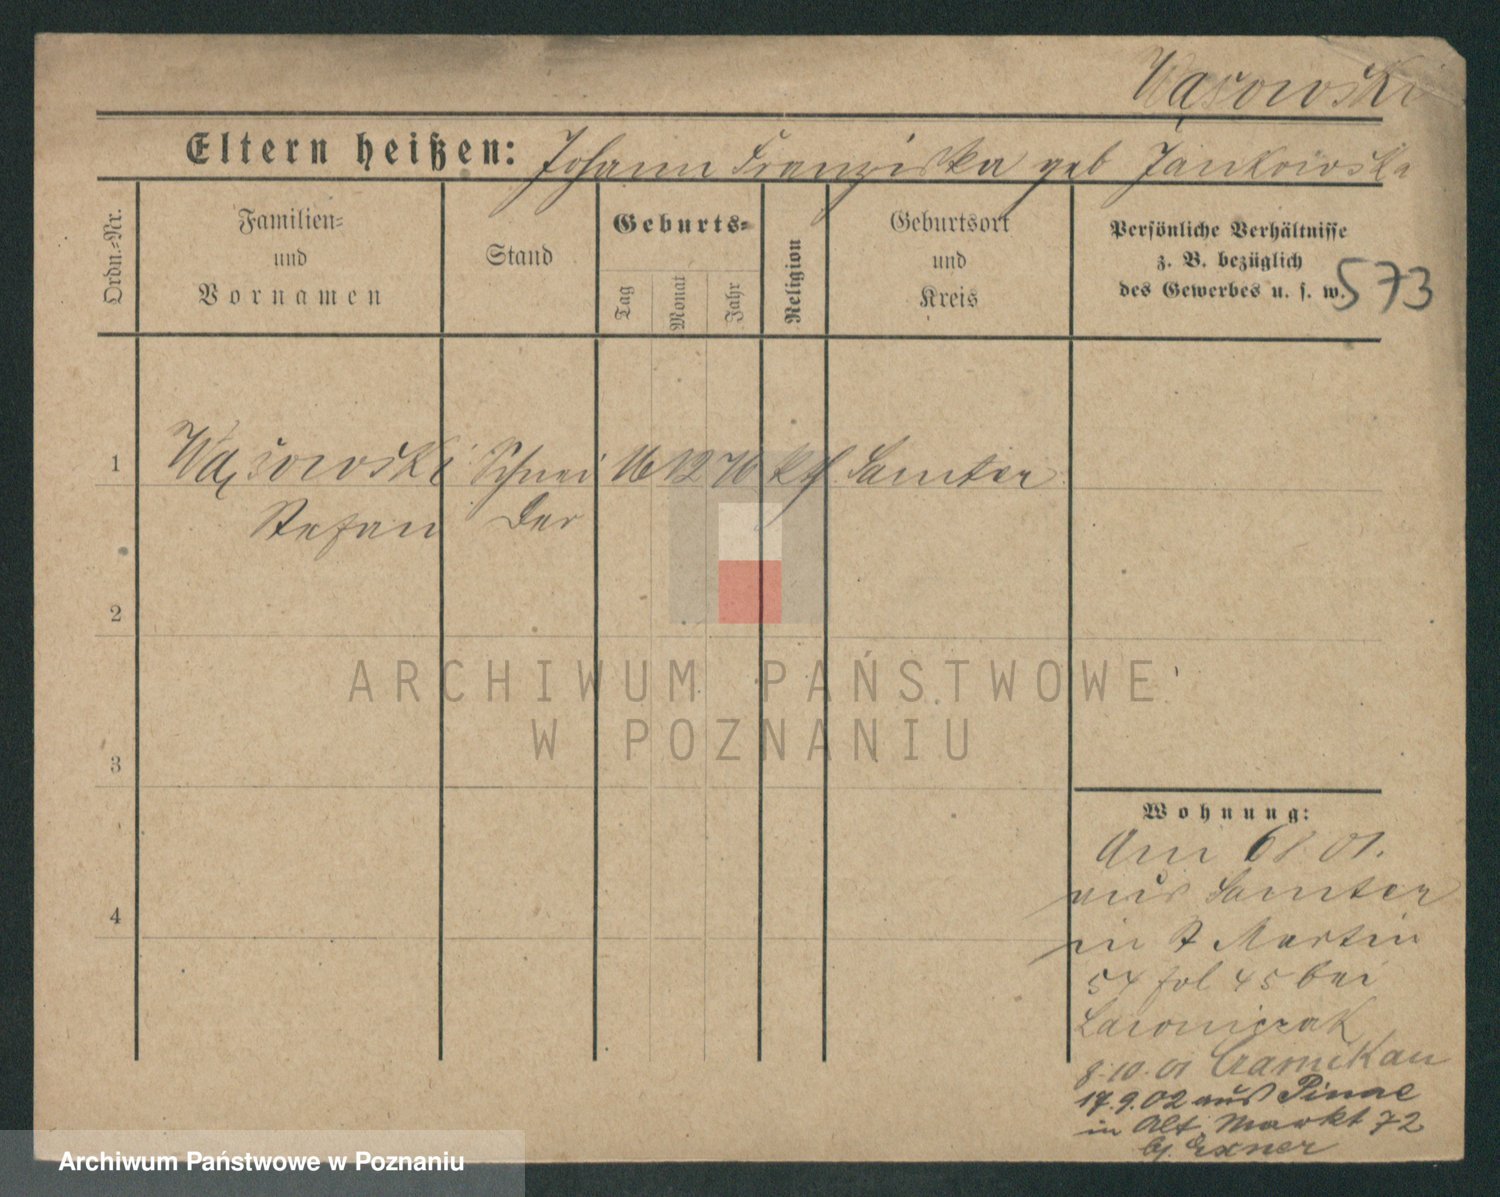 Wąsowski
Eltern heißen: Johann Franziska geb Jankowska
Ordn.-Nr.
Familien-
und
Vornamen
Stand
Geburts-
Tag
Monat
Jahr
Religion
Geburtsort
und
Kreis
Persönliche Verhältnisse
z. B. bezüglich
des Gewerbes u. s. w.
573
1 Wąsowski Schnei 16 12 76 kth Samter
Stefan der
2
3
4
ARCHIWUM PAŃSTWOWE
W POZNANIU
Wohnung:
Am 6 8 01.
aus Samter
in St Martin
54 fol 45 bei
8.10.01 Czarnikau
17.9.02 aus Pinne
in Alt. Markt 72
bj. Exner
Archiwum Państwowe w Poznaniu